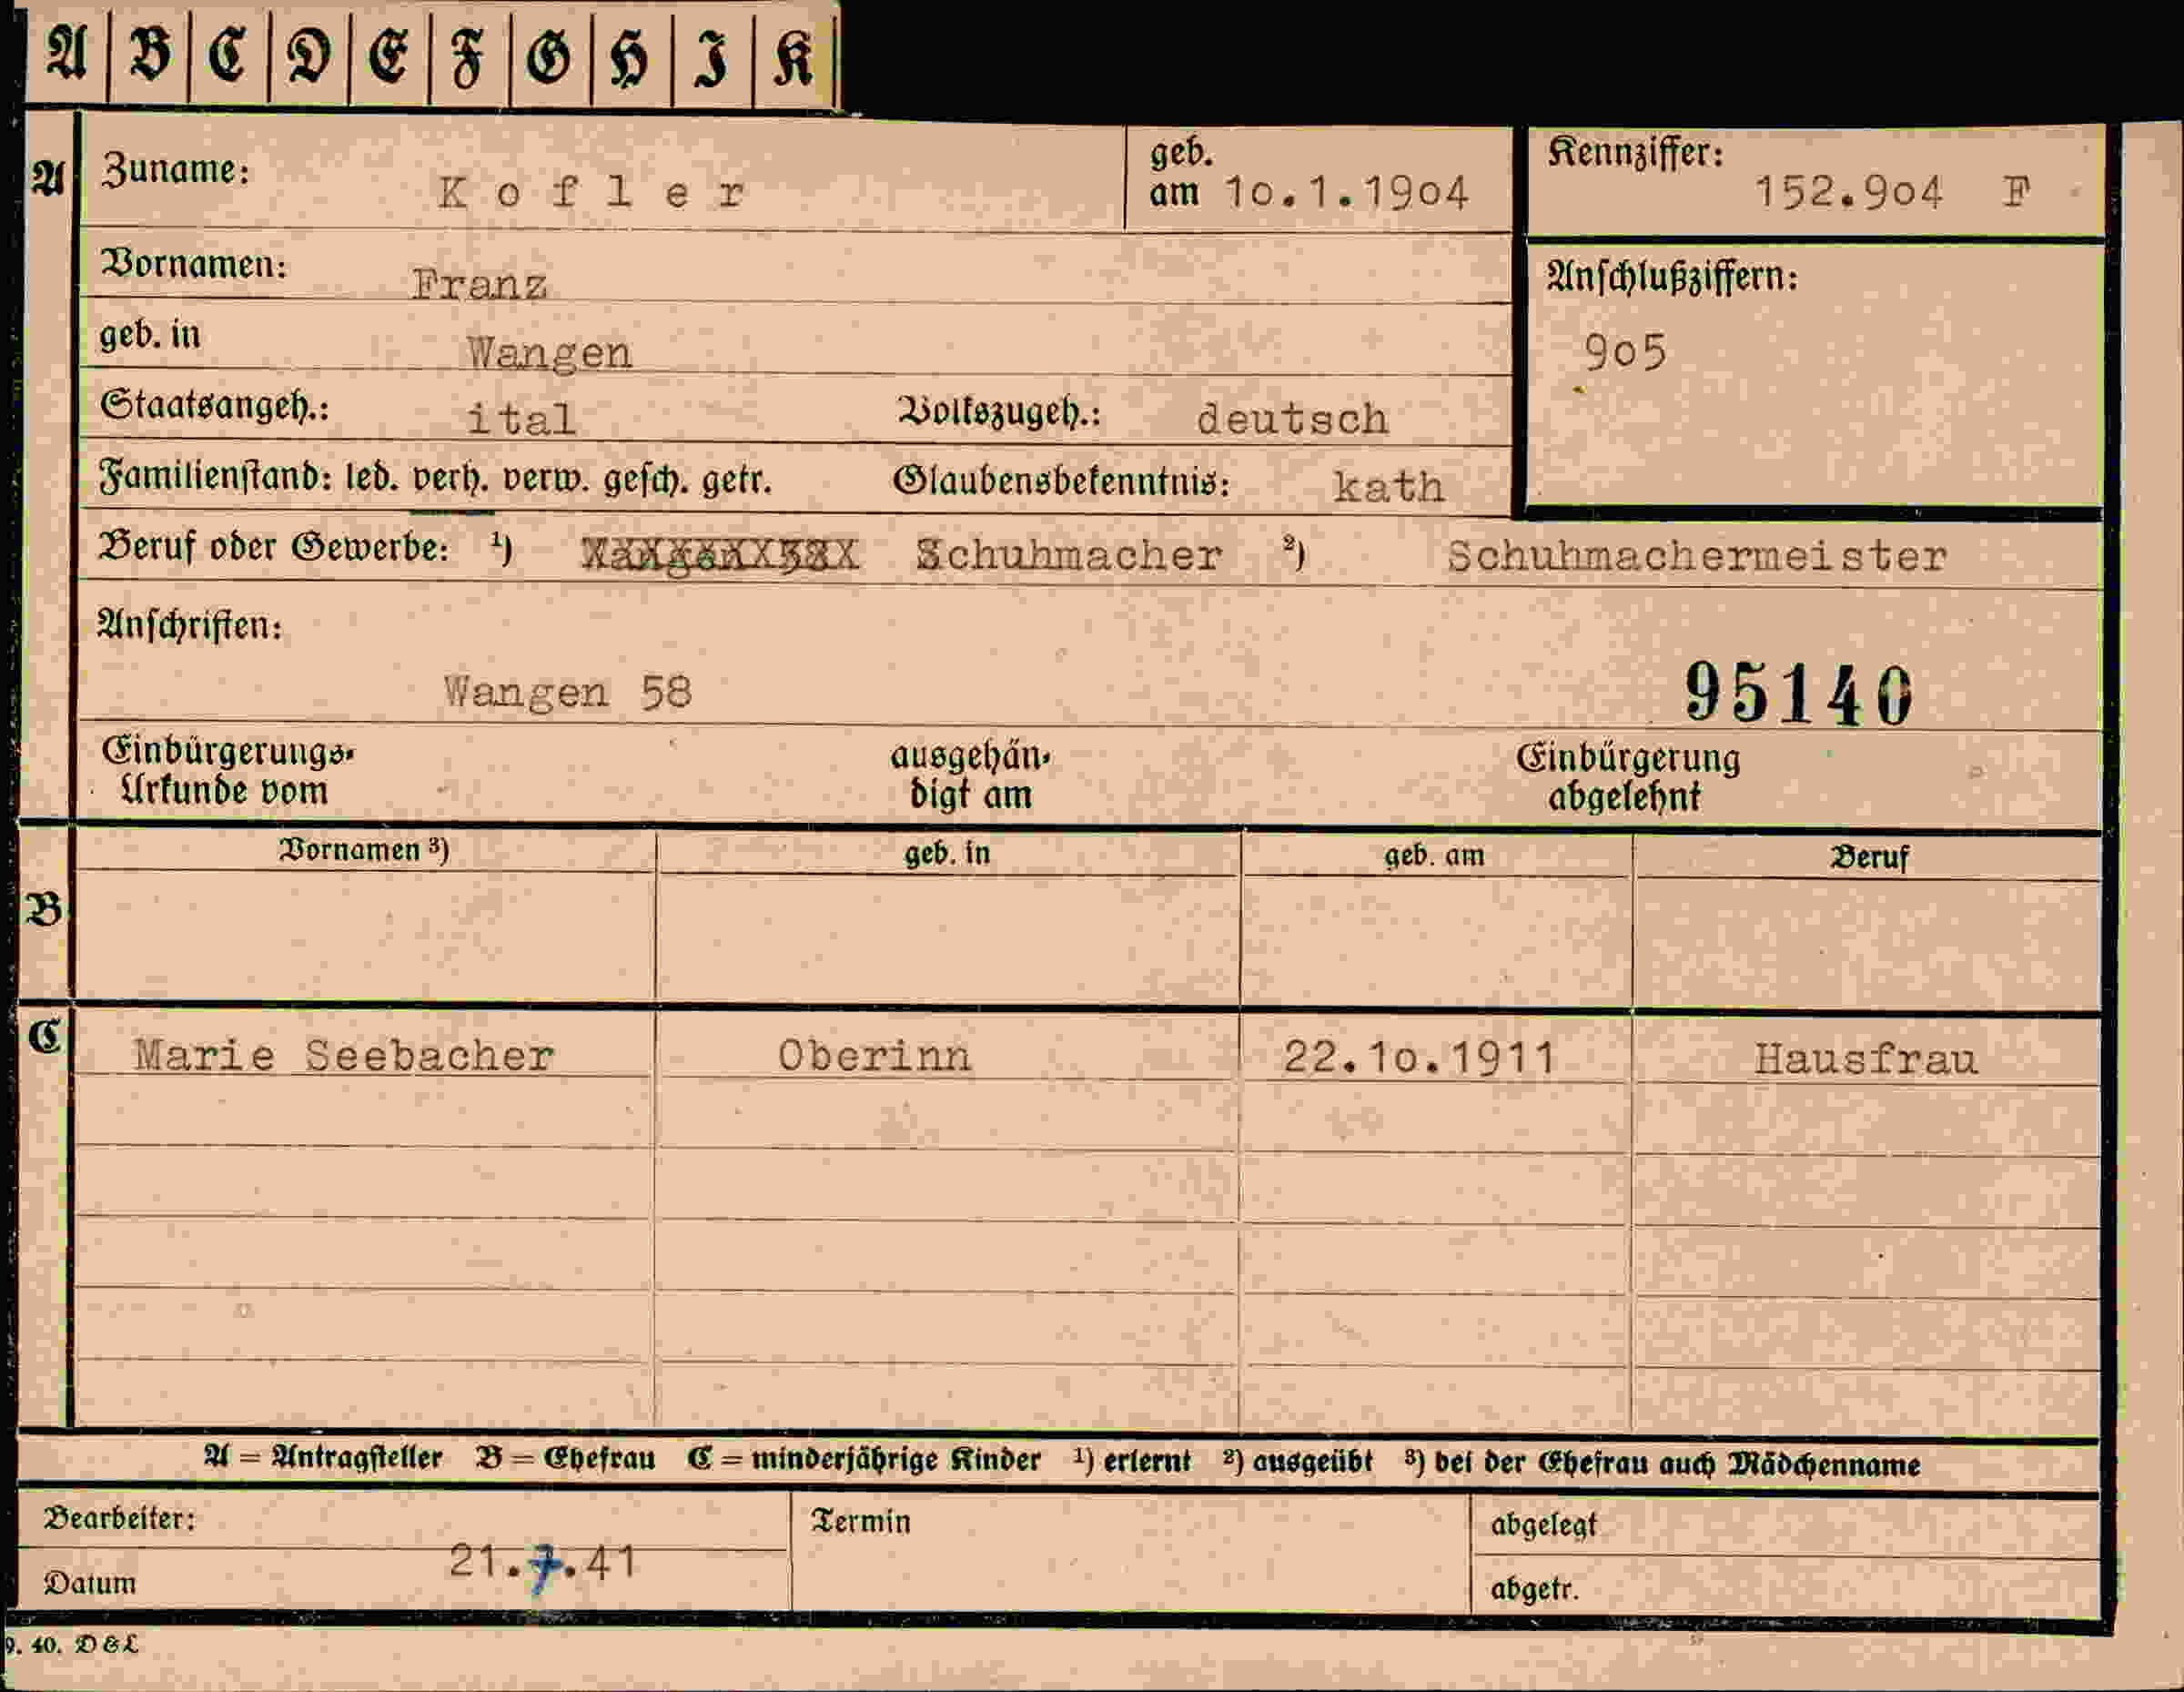 A B C D E F G H I K
A Zuname: Kofler geb. am 10.1.1904 Kennziffer: 152.904 F
Vornamen: Franz Anschlußziffern:
geb. in Wangen 905
Staatsangeh.: ital Volkszugeh.: deutsch
Familienstand: led. verh. verw. gesch. getr. Glaubensbekenntnis: kath
Beruf oder Gewerbe: ¹) Schuhmacher ²) Schuhmachermeister
Anschriften:
Wangen 58 95140
Einbürgerungs- ausgehän- Einbürgerung
Urkunde vom digt am abgelehnt
Vornamen ³) geb. in geb. am Beruf
B
C Marie Seebacher Oberinn 22.10.1911 Hausfrau
A = Antragsteller B = Ehefrau C = minderjährige Kinder ¹) erlernt ²) ausgeübt ³) bei der Ehefrau auch Mädchenname
Bearbeiter: Termin abgelegt
Datum 21.7.41 abgetr.
9. 40. D & L